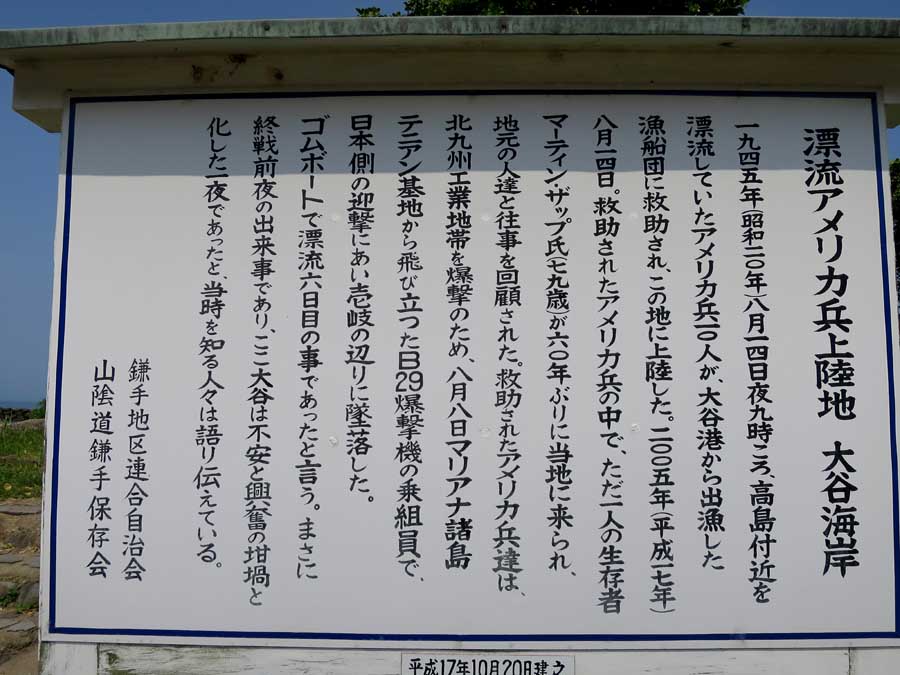 漂流アメリカ兵上陸地　大谷海岸
一九四五年(昭和二〇年)八月一四日夜九時ころ、高島付近を
漂流していたアメリカ兵一〇人が、大谷港から出漁した
漁船団に救助され、この地に上陸した。二〇〇五年(平成一七年)
八月一四日。救助されたアメリカ兵の中で、ただ一人の生存者
マーティン・ザップ氏(七九歳)が六〇年ぶりに当地に来られ、
地元の人達と往事を回顧された。救助されたアメリカ兵達は、
北九州工業地帯を爆撃のため、八月八日マリアナ諸島
テニアン基地から飛び立つたB29爆撃機の乗組員で、
日本側の迎撃にあい壱岐の辺りに墜落した。
ゴムボートで漂流六日目の事であったと言う。まさに
終戦前夜の出来事であり、ここ大谷は不安と興奮の坩堝と
化した一夜であったと、当時を知る人々は語り伝えている。
鎌手地区連合自治会
山陰道鎌手保存会
平成17年10月20日建之